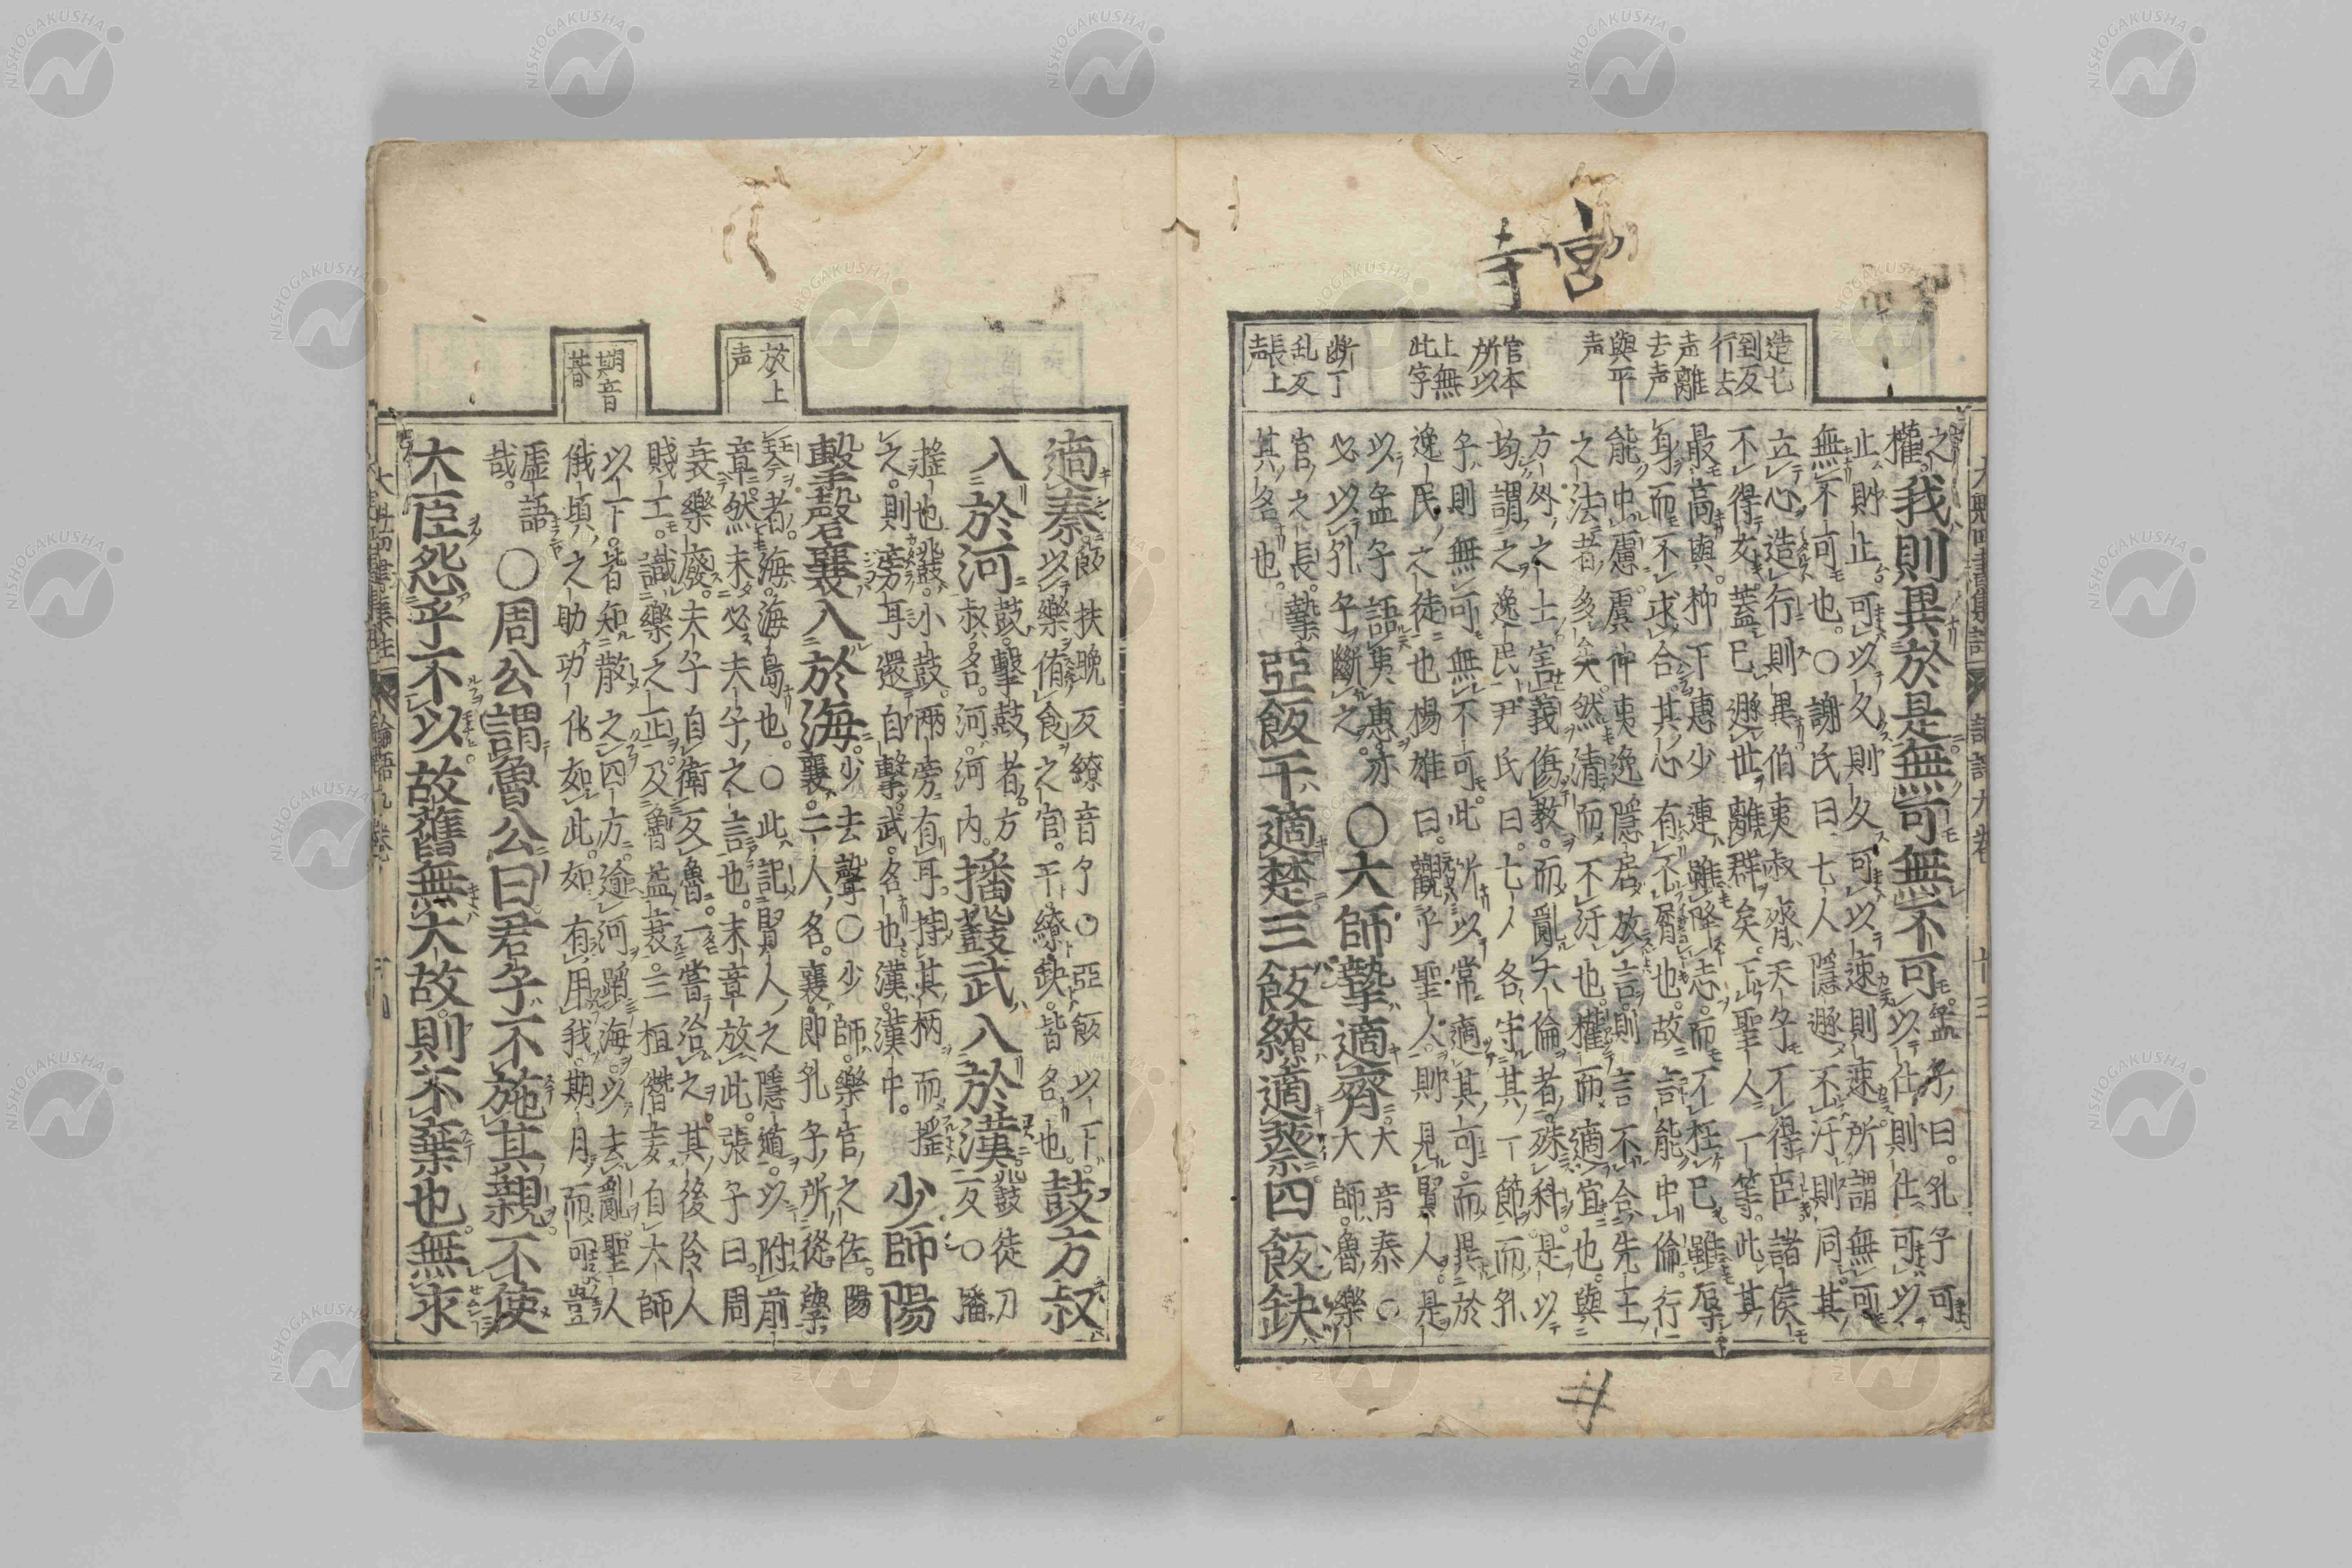 宮
寺
造七
到反
行去
声離
去声
與平
声
官本
所以
上無
此字
断丁
乱反
長上
声
之
權
我則異於是無可無不可
孟子曰孔子可
以仕則仕可以
止則止可以久則久可以速則速所謂無可
無不可也○謝氏曰七人隱遯不汙則同其
立心造行則異伯夷叔齊天子不得臣諸侯
不得友蓋已遯世離群矣下聖人一等此其
最高與柳下惠少連雖降志而不枉己雖辱
身而不求合其心有不屑也故言能中倫行
能中慮虞仲夷逸隱居放言則言不合先王
之法者多矣然清而不汙也權而適宜也與
方外之士害義傷教而亂大倫者殊科是以
均謂之逸民尹氏曰七人各守其一節而孔
子則無可無不可此所以常適其可而異於
逸民之徒也楊雄曰觀乎聖人則見賢人是
以孟子語夷惠亦
必以孔子斷之
○大師摯適齊
大音泰○
大師魯樂
官之長摯
其名也
亞飯干適楚三飯繚適蔡四飯缺
放上
声
期音
朞
適秦
飯扶晚反繚音了○亞飯以下
以樂侑食之官干繚缺皆名也
鼓方叔
入於河
鼓擊鼓者方
叔名河河內
播鼗武入於漢
鼗徒刀
反○播
搖也鼗小鼓兩旁有耳持其柄而搖
之則旁耳還自擊武名也漢漢中
少師陽
擊磬襄入於海
少去聲○少師樂官之佐陽
襄二人名襄即孔子所從學
琴者海海島也○此記賢人之隱遯以附前
章然未必夫子之言也末章放此張子曰周
衰樂廢夫子自衛反魯一嘗治之其後伶人
賤工識樂之正及魯益衰三桓僭妄自大師
以下皆知散之四方逾河蹈海以去亂聖人
俄頃之助功化如此如有用我期月而可豈
虛語
哉
○周公謂魯公曰君子不施其親不使
大臣怨乎不以故舊無大故則不棄也無求